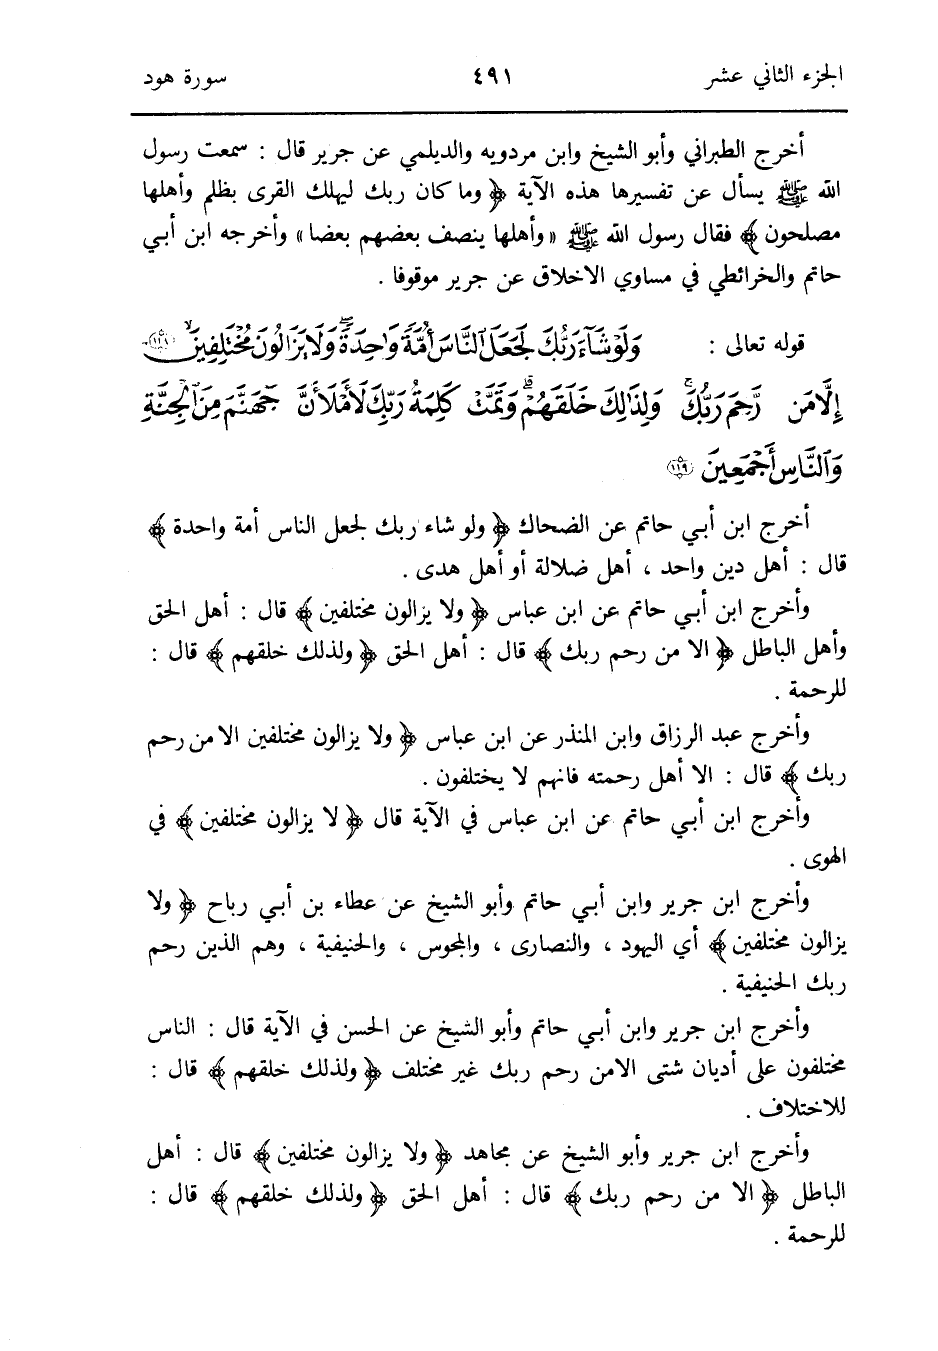 الجزء الثاني عشر ٤٩١ سورة هود
أخرج الطبراني وأبو الشيخ وابن مردويه والديلمي عن جرير قال : سمعت رسول
الله ﷺ يسأل عن تفسيرها هذه الآية ﴿ وما كان ربك ليهلك القرى بظلم وأهلها
مصلحون ﴾ فقال رسول الله ﷺ « وأهلها ينصف بعضهم بعضا » وأخرجه ابن أبي
حاتم والخرائطي في مساوي الاخلاق عن جرير موقوفا .
قوله تعالى : وَلَوْ شَآءَ رَبُّكَ لَجَعَلَ ٱلنَّاسَ أُمَّةً وَٰحِدَةً ۖ وَلَا يَزَالُونَ مُخْتَلِفِينَ ۙ ١١٨
إِلَّا مَن رَّحِمَ رَبُّكَ ۚ وَلِذَٰلِكَ خَلَقَهُمْ ۗ وَتَمَّتْ كَلِمَةُ رَبِّكَ لَأَمْلَأَنَّ جَهَنَّمَ مِنَ ٱلْجِنَّةِ
وَٱلنَّاسِ أَجْمَعِينَ ١١٩
أخرج ابن أبي حاتم عن الضحاك ﴿ ولو شاء ربك لجعل الناس أمة واحدة ﴾
قال : أهل دين واحد ، أهل ضلالة أو أهل هدى .
وأخرج ابن أبي حاتم عن ابن عباس ﴿ ولا يزالون مختلفين ﴾ قال : أهل الحق
وأهل الباطل ﴿ الا من رحم ربك ﴾ قال : أهل الحق ﴿ ولذلك خلقهم ﴾ قال :
للرحمة .
وأخرج عبد الرزاق وابن المنذر عن ابن عباس ﴿ ولا يزالون مختلفين الا من رحم
ربك ﴾ قال : الا أهل رحمته فانهم لا يختلفون .
وأخرج ابن أبي حاتم عن ابن عباس في الآية قال ﴿ لا يزالون مختلفين ﴾ في
الهوى .
وأخرج ابن جرير وابن أبي حاتم وأبو الشيخ عن عطاء بن أبي رباح ﴿ ولا
يزالون مختلفين ﴾ أي اليهود ، والنصارى ، والمجوس ، والحنيفية ، وهم الذين رحم
ربك الحنيفية .
وأخرج ابن جرير وابن أبي حاتم وأبو الشيخ عن الحسن في الآية قال : الناس
مختلفون على أديان شتى الامن رحم ربك غير مختلف ﴿ ولذلك خلقهم ﴾ قال :
للاختلاف .
وأخرج ابن جرير وأبو الشيخ عن مجاهد ﴿ ولا يزالون مختلفين ﴾ قال : أهل
الباطل ﴿ الا من رحم ربك ﴾ قال : أهل الحق ﴿ ولذلك خلقهم ﴾ قال :
للرحمة .